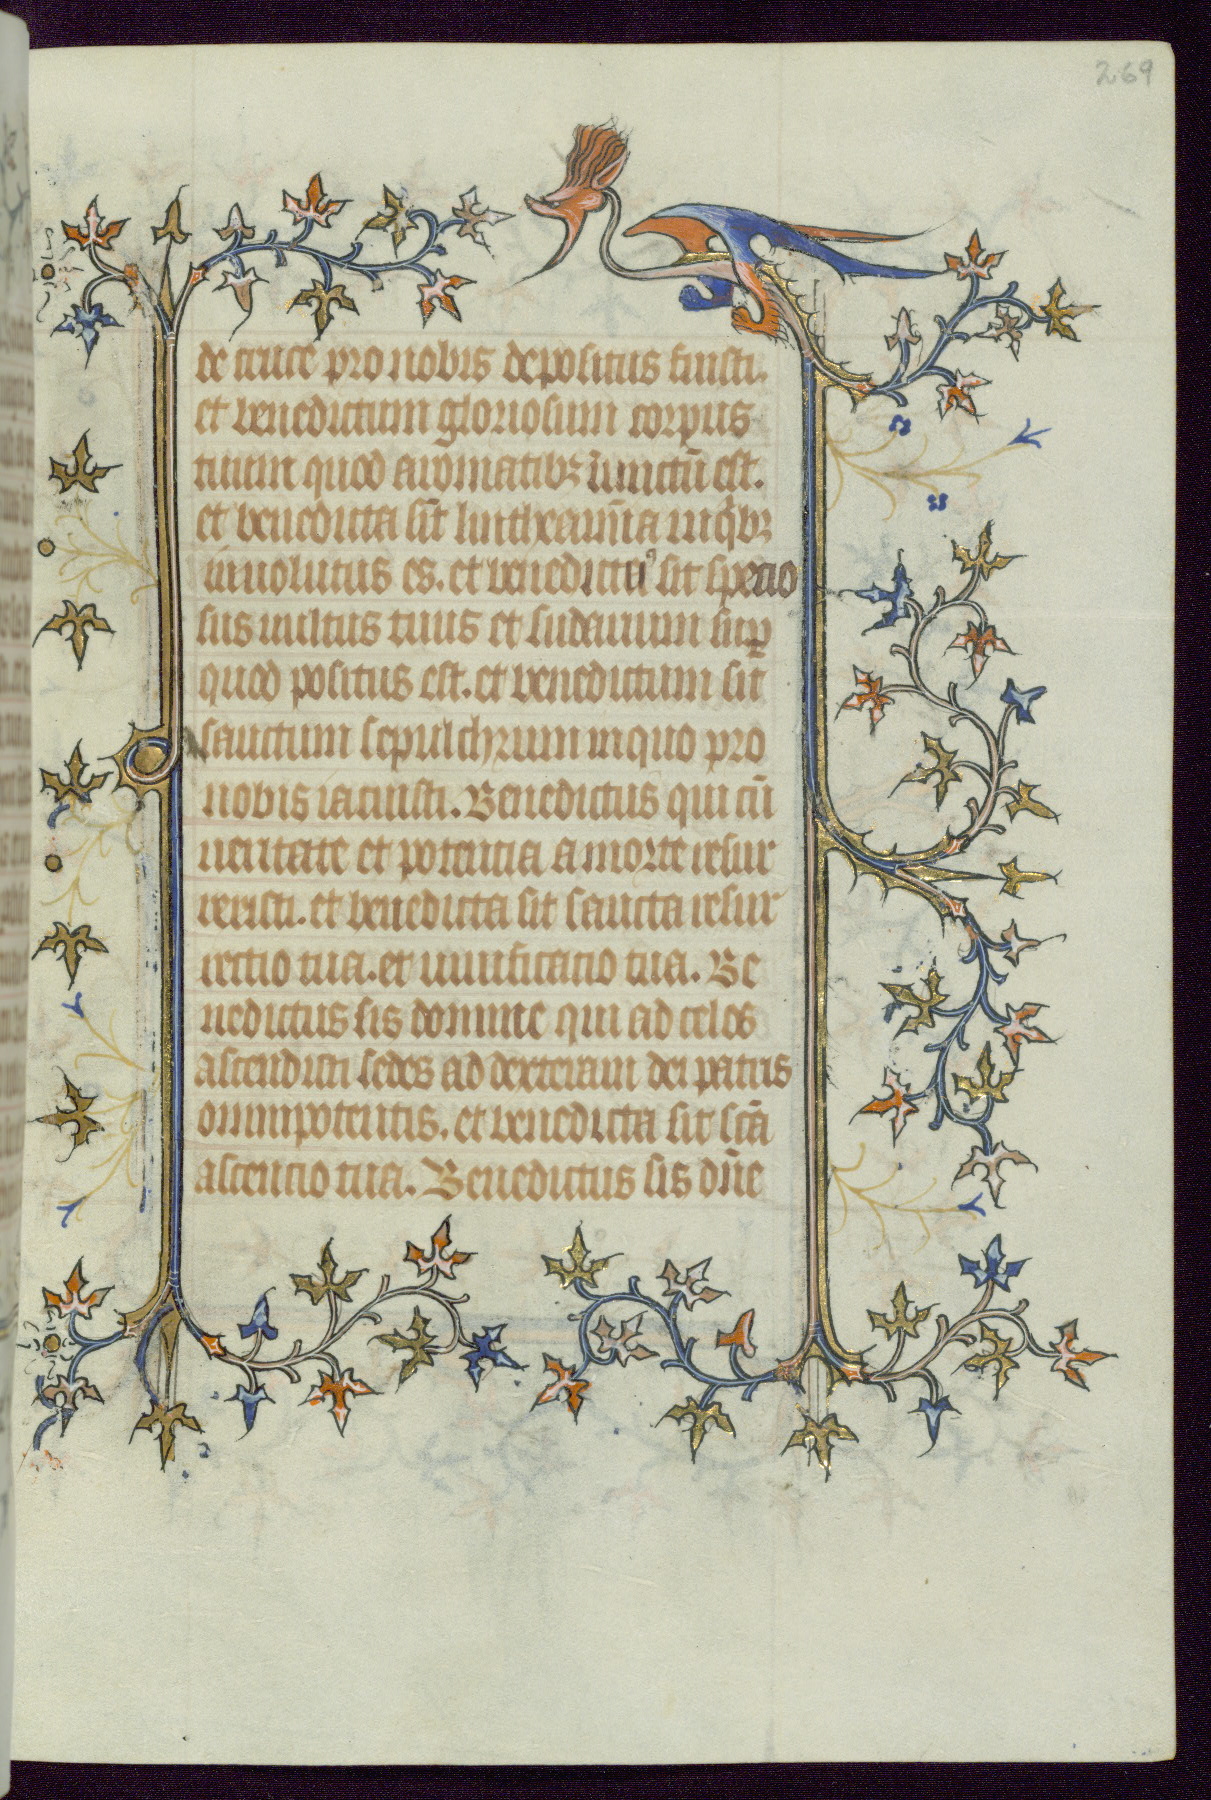 269
de cruce pro nobis depositus fuisti.
et benedictum gloriosum corpus
tuum quod aromatibꝫ iunctū est.
et benedicta sīt lintheamīa in qͥbꝫ
inuolutus es. et benedictuꝰ sit specio
sus uultus tuus et sudarium suꝑ
quod positus est. et benedictum sit
sanctum sepulchrum in quo pro
nobis iacuisti. Benedictus qui cū
ueritate et potentia a morte resur
rexisti. et benedicta sit sancta resur
rectio tua. et uiuificatio tua. Be
nedictus sis domine qui ad celos
ascendisti sedes ad dexteram dei patris
omnipotentis. et benedicta sit scā
ascencio tua. Benedictus sis dn̄e